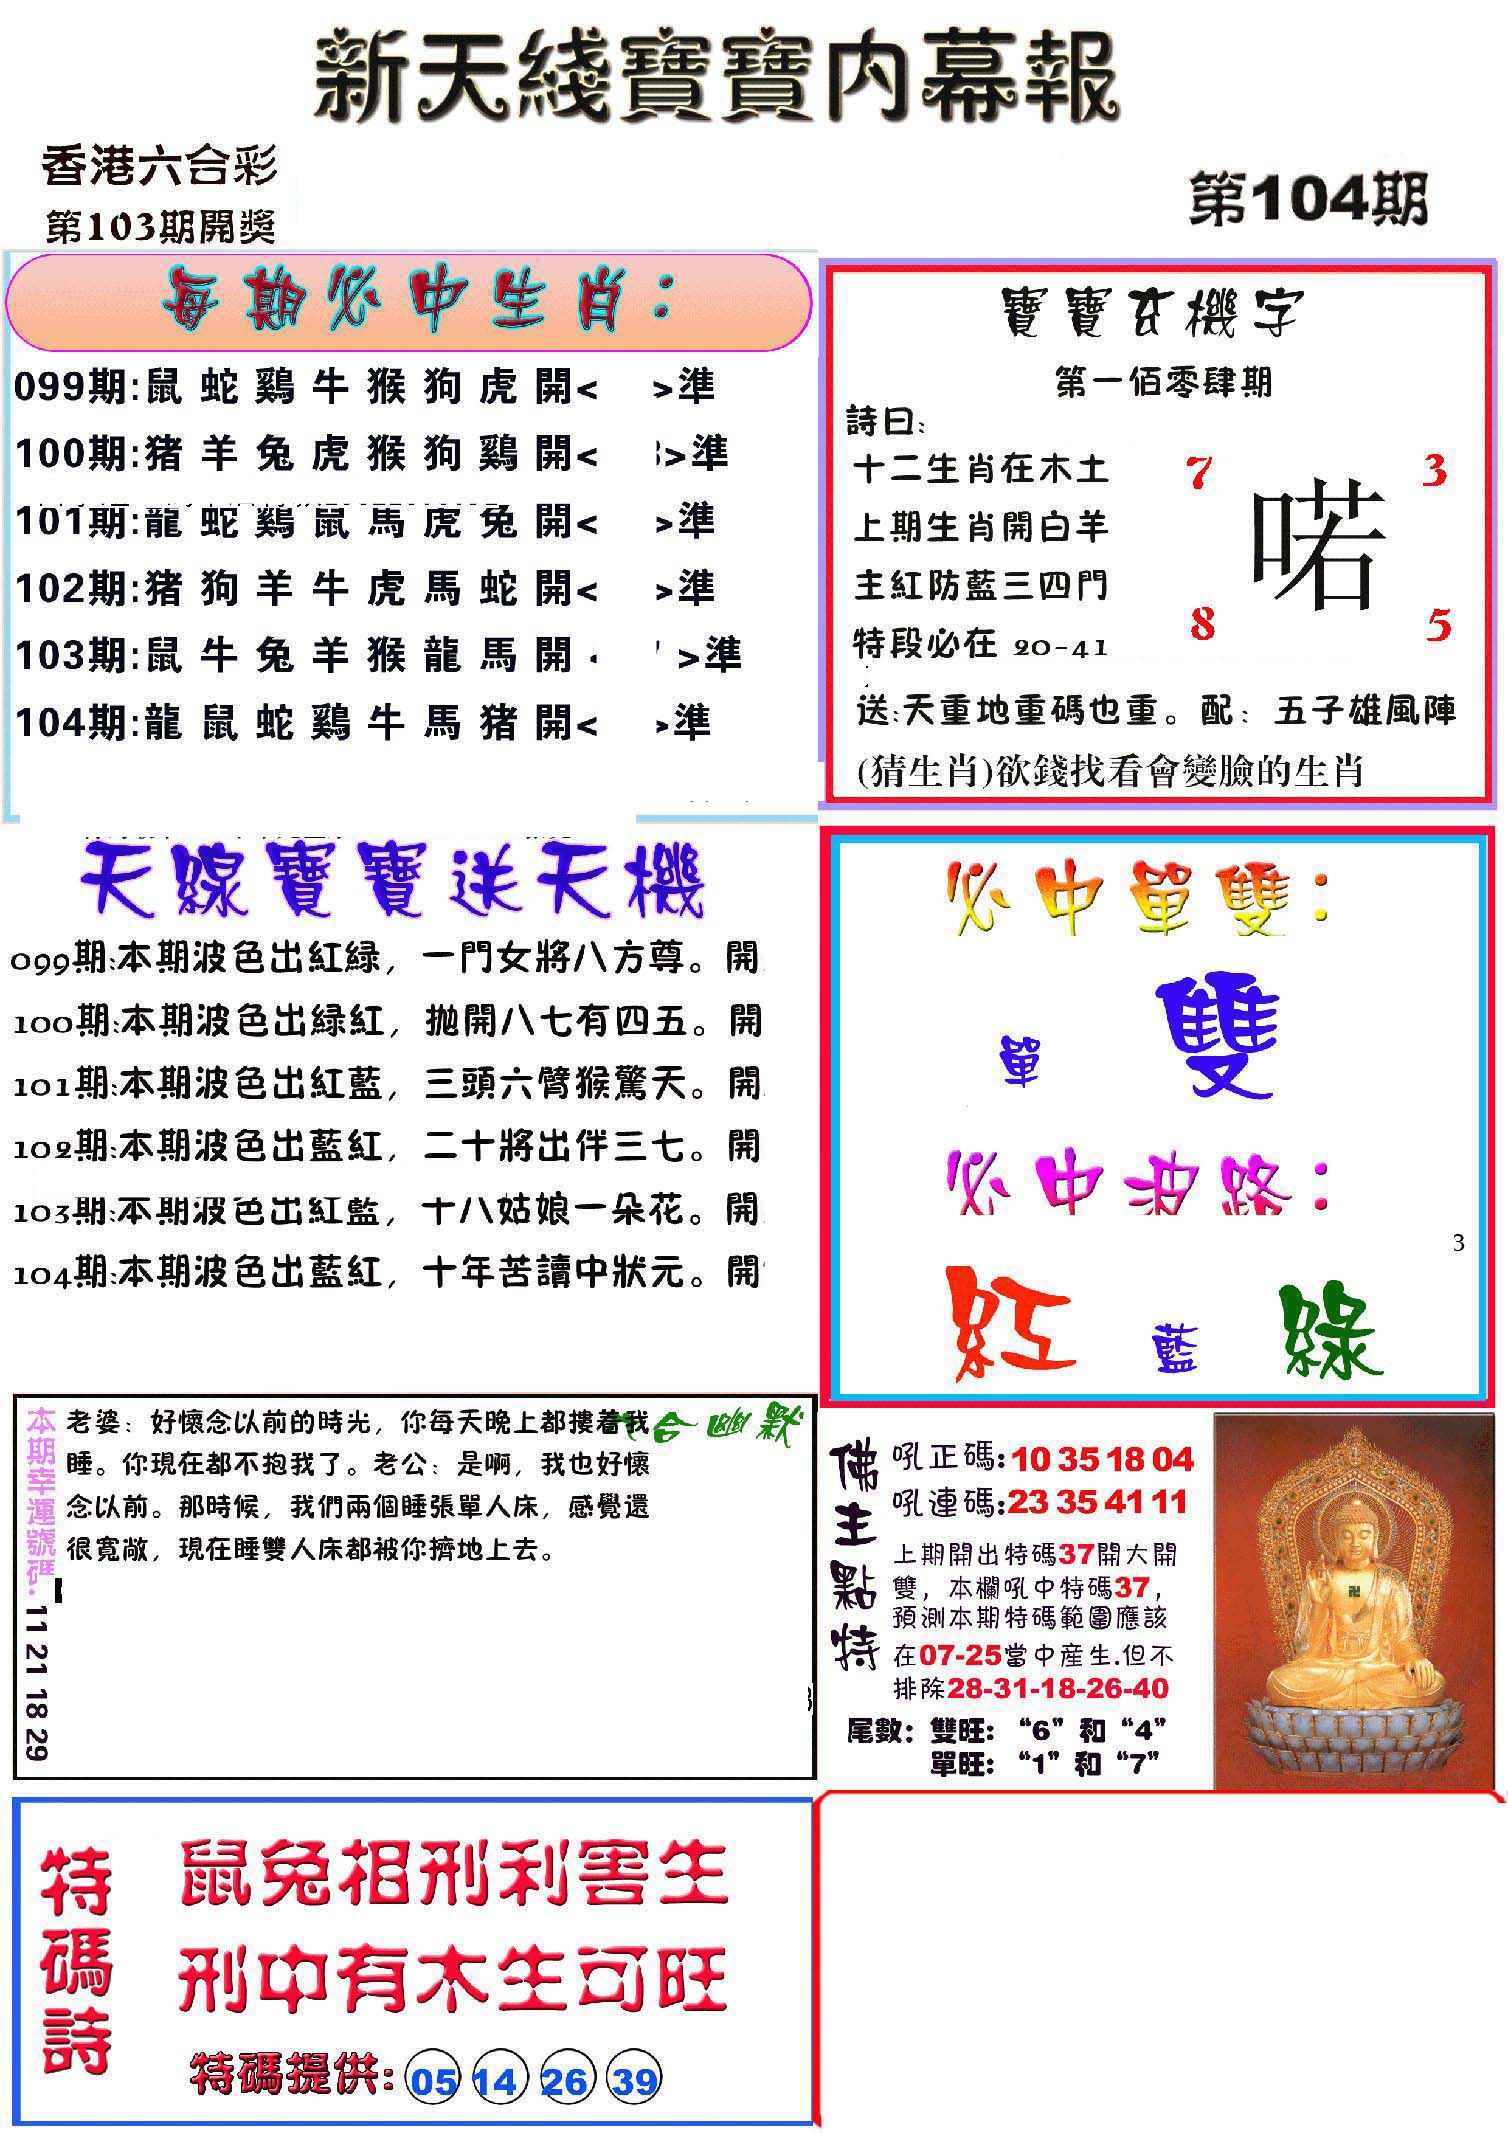 新天綫寶寶內幕報
香港六合彩
第103期開獎
第104期
每期必中生肖：
099期:鼠 蛇 鷄 牛 猴 狗 虎 開< >準
100期:猪 羊 兔 虎 猴 狗 鷄 開< >準
101期:龍 蛇 鷄 鼠 馬 虎 兔 開< >準
102期:猪 狗 羊 牛 虎 馬 蛇 開< >準
103期:鼠 牛 兔 羊 猴 龍 馬 開 >準
104期:龍 鼠 蛇 鷄 牛 馬 猪 開< >準
寶寶玄機字
第一佰零肆期
詩曰:
十二生肖在木土
上期生肖開白羊
主紅防藍三四門
特段必在 20-41
7 3
喏
8 5
送:天重地重碼也重。配：五子雄風陣
(猜生肖)欲錢找看會變臉的生肖
天線寶寶送天機
099期:本期波色出紅緑，一門女將八方尊。開
100期:本期波色出緑紅，拋開八七有四五。開
101期:本期波色出紅藍，三頭六臂猴驚天。開
102期:本期波色出藍紅，二十將出伴三七。開
103期:本期波色出紅藍，十八姑娘一朵花。開
104期:本期波色出藍紅，十年苦讀中狀元。開
必中單雙：
單 雙
必中波路：
3
紅 藍 綠
本期幸運號碼: 11 21 18 29
合幽默
老婆：好懷念以前的時光，你每天晚上都摟着我
睡。你現在都不抱我了。老公：是啊，我也好懷
念以前。那時候，我們兩個睡張單人床，感覺還
很寬敞，現在睡雙人床都被你擠地上去。
佛主點特
吼正碼:10 35 18 04
吼連碼:23 35 41 11
上期開出特碼37開大開
雙，本欄吼中特碼37，
預測本期特碼範圍應該
在07-25當中産生.但不
排除28-31-18-26-40
尾數：雙旺：“6”和“4”
單旺：“1”和“7”
卍
特碼詩
鼠兔相刑利害生
刑中有木生可旺
特碼提供: 05 14 26 39